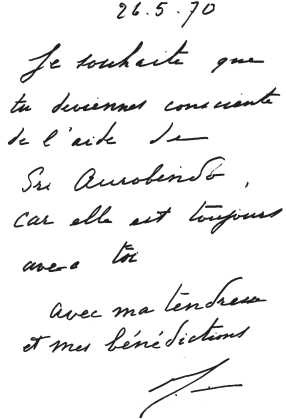 26.5.70
Je souhaite que
tu deviennes consciente
de l'aide de
Sri Aurobindo,
car elle est toujours
avec toi
avec ma tendresse
et mes bénédictions